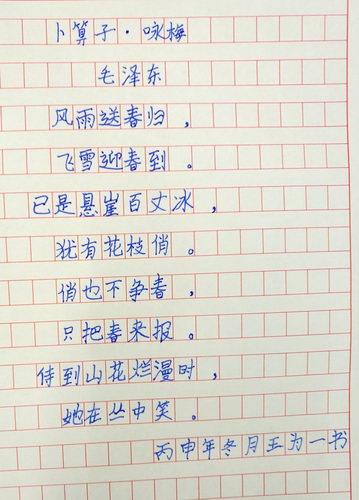 卜算子·咏梅
毛泽东
风雨送春归，
飞雪迎春到。
已是悬崖百丈冰，
犹有花枝俏。
俏也不争春，
只把春来报。
待到山花烂漫时，
她在丛中笑。
丙申年冬月王为一书